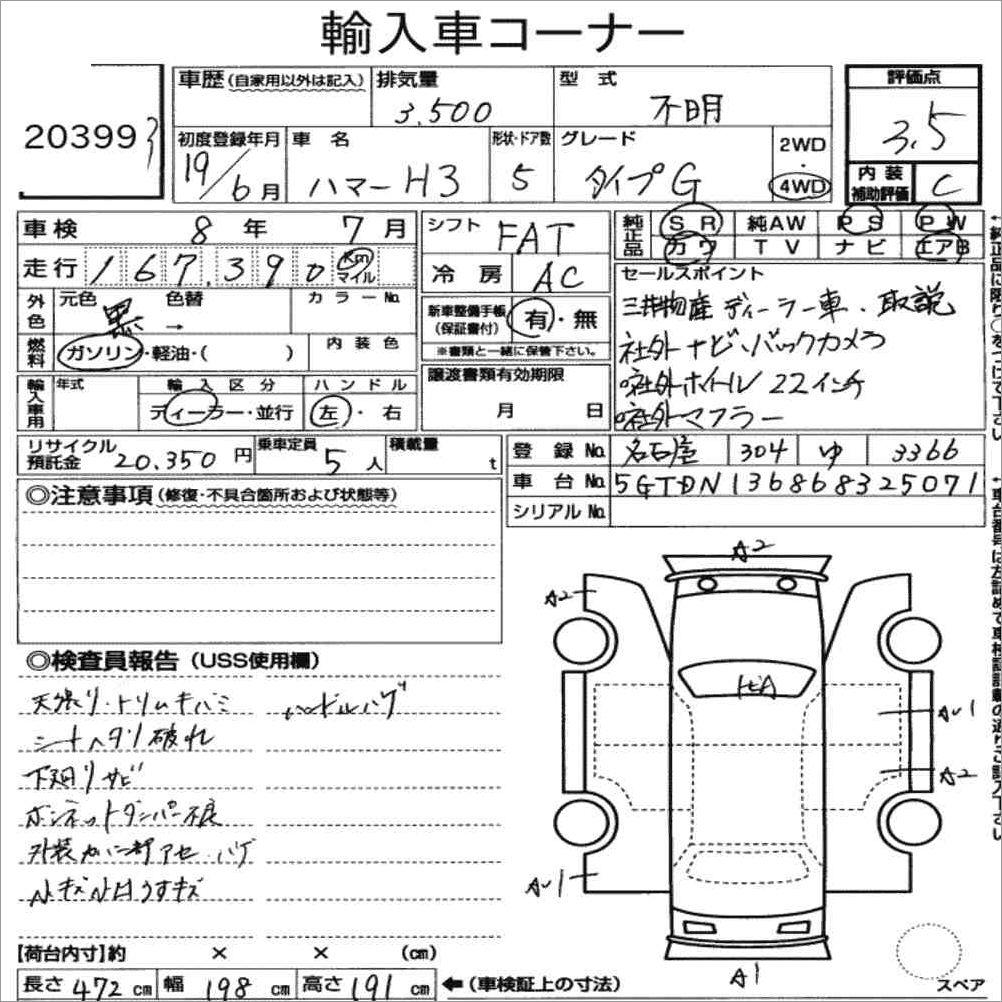 輸入車コーナー
20399
車歴(自家用以外は記入) 排気量 型式 評価点
3,500 不明 3.5
初度登録年月 車名 形状・ドア数 グレード 2WD・4WD 内装補助評価
19/6月 ハマーH3 5 タイプG C
車検 8年 7月 シフト FAT 純正品 SR 純AW PS PW
カワ TV ナビ エアB
走行 167,390 Km マイル 冷房 AC
セールスポイント
外色 元色 色替 カラーNo.
黒 →
新車整備手帳(保証書付) 有・無
※書類と一緒に保管下さい。
三井物産ディーラー車・取説
社外ナビ・バックカメラ
社外ホイール 22インチ
社外マフラー
燃料 ガソリン・軽油・( ) 内装色
譲渡書類有効期限
月 日
輸入車用 年式 輸入区分 ハンドル
ディーラー・並行 左・右
リサイクル預託金 20,350円 乗車定員 5人 積載量 t
登録No. 名古屋 304 ゆ 3366
車台No. 5GTDN136868325071
シリアルNo.
◎注意事項(修復・不具合箇所および状態等)
◎検査員報告(USS使用欄)
天張り・トリムキバミ ハンドルハゲ
シートヘタリ破れ
下廻りサビ
ボンネットダンパー不良
外装カバー部アセ・ハゲ
小キズ小凹うすキズ
A2
A2
ヒA
A1
A2
A1
A1
スペア
【荷台内寸】約 × × (cm)
長さ 472 cm 幅 198 cm 高さ 191 cm ←(車検証上の寸法)